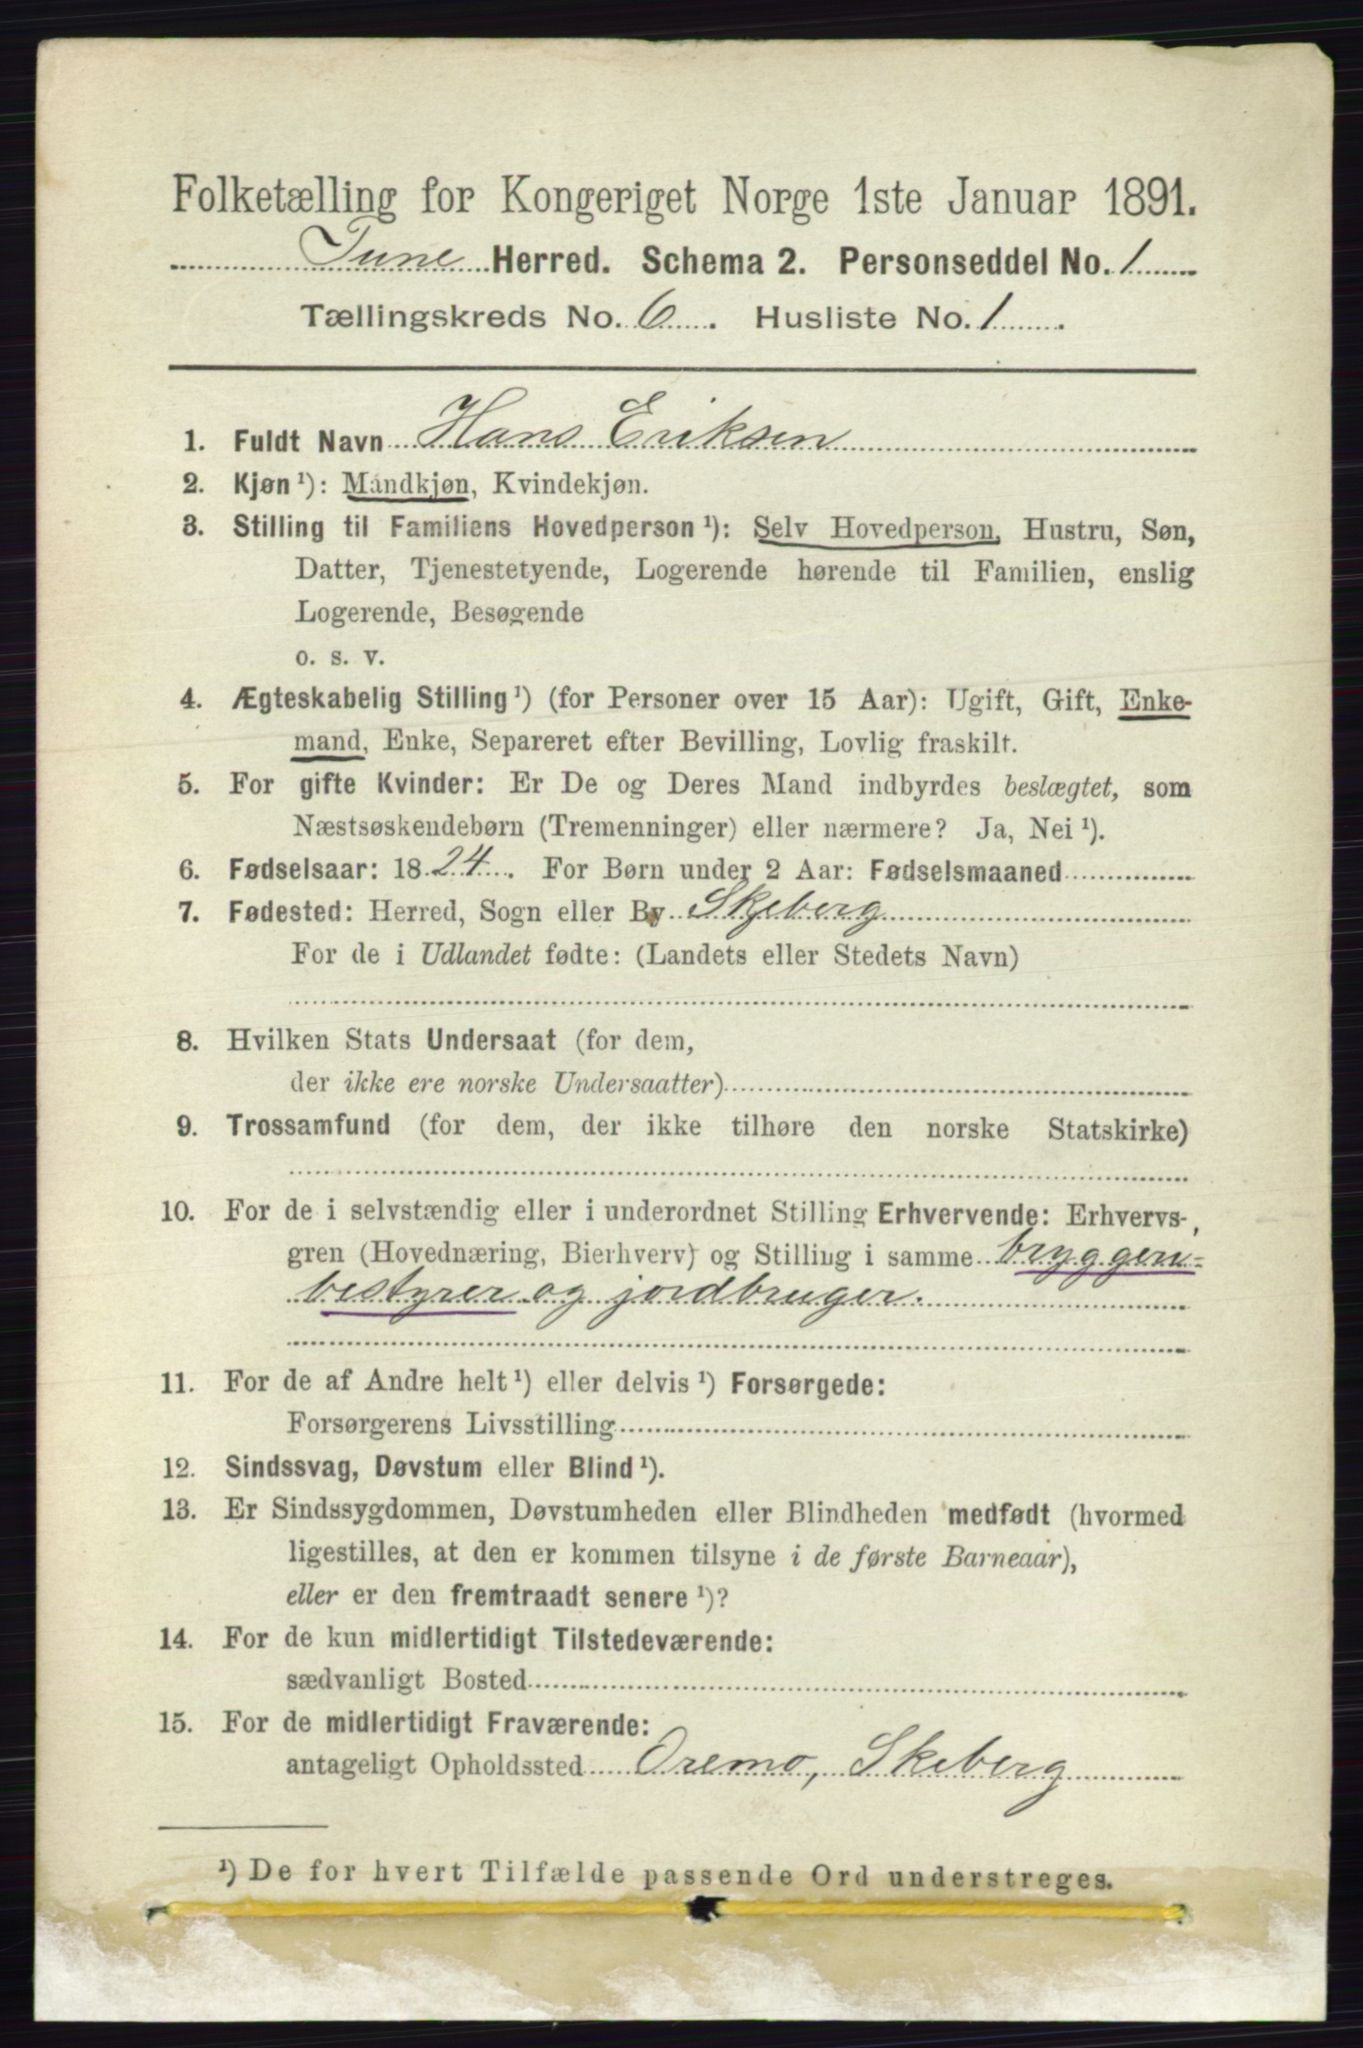 Folketælling for Kongeriget Norge 1ste Januar 1891.
Tune Herred. Schema 2. Personseddel No. 1
Tællingskreds No. 6. Husliste No. 1.
1. Fuldt Navn Hans Eriksen
2. Kjøn¹): Mandkjøn, Kvindekjøn.
3. Stilling til Familiens Hovedperson¹): Selv Hovedperson, Hustru, Søn,
Datter, Tjenestetyende, Logerende hørende til Familien, enslig
Logerende, Besøgende
o. s. v.
4. Ægteskabelig Stilling¹) (for Personer over 15 Aar): Ugift, Gift, Enke-
mand, Enke, Separeret efter Bevilling, Lovlig fraskilt.
5. For gifte Kvinder: Er De og Deres Mand indbyrdes beslægtet, som
Næstsøskendebørn (Tremenninger) eller nærmere? Ja, Nei¹).
6. Fødselsaar: 1824. For Børn under 2 Aar: Fødselsmaaned
7. Fødested: Herred, Sogn eller By Skjeberg
For de i Udlandet fødte: (Landets eller Stedets Navn)
8. Hvilken Stats Undersaat (for dem,
der ikke ere norske Undersaatter)
9. Trossamfund (for dem, der ikke tilhøre den norske Statskirke)
10. For de i selvstændig eller i underordnet Stilling Erhvervende: Erhvervs-
gren (Hovednæring, Bierhverv) og Stilling i samme bryggeri-
bestyrer og jordbruger.
11. For de af Andre helt¹) eller delvis¹) Forsørgede:
Forsørgerens Livsstilling
12. Sindssvag, Døvstum eller Blind¹).
13. Er Sindssygdommen, Døvstumheden eller Blindheden medfødt (hvormed
ligestilles, at den er kommen tilsyne i de første Barneaar),
eller er den fremtraadt senere¹)?
14. For de kun midlertidigt Tilstedeværende:
sædvanligt Bosted
15. For de midlertidigt Fraværende:
antageligt Opholdssted Oremo, Skeberg
¹) De for hvert Tilfælde passende Ord understreges.